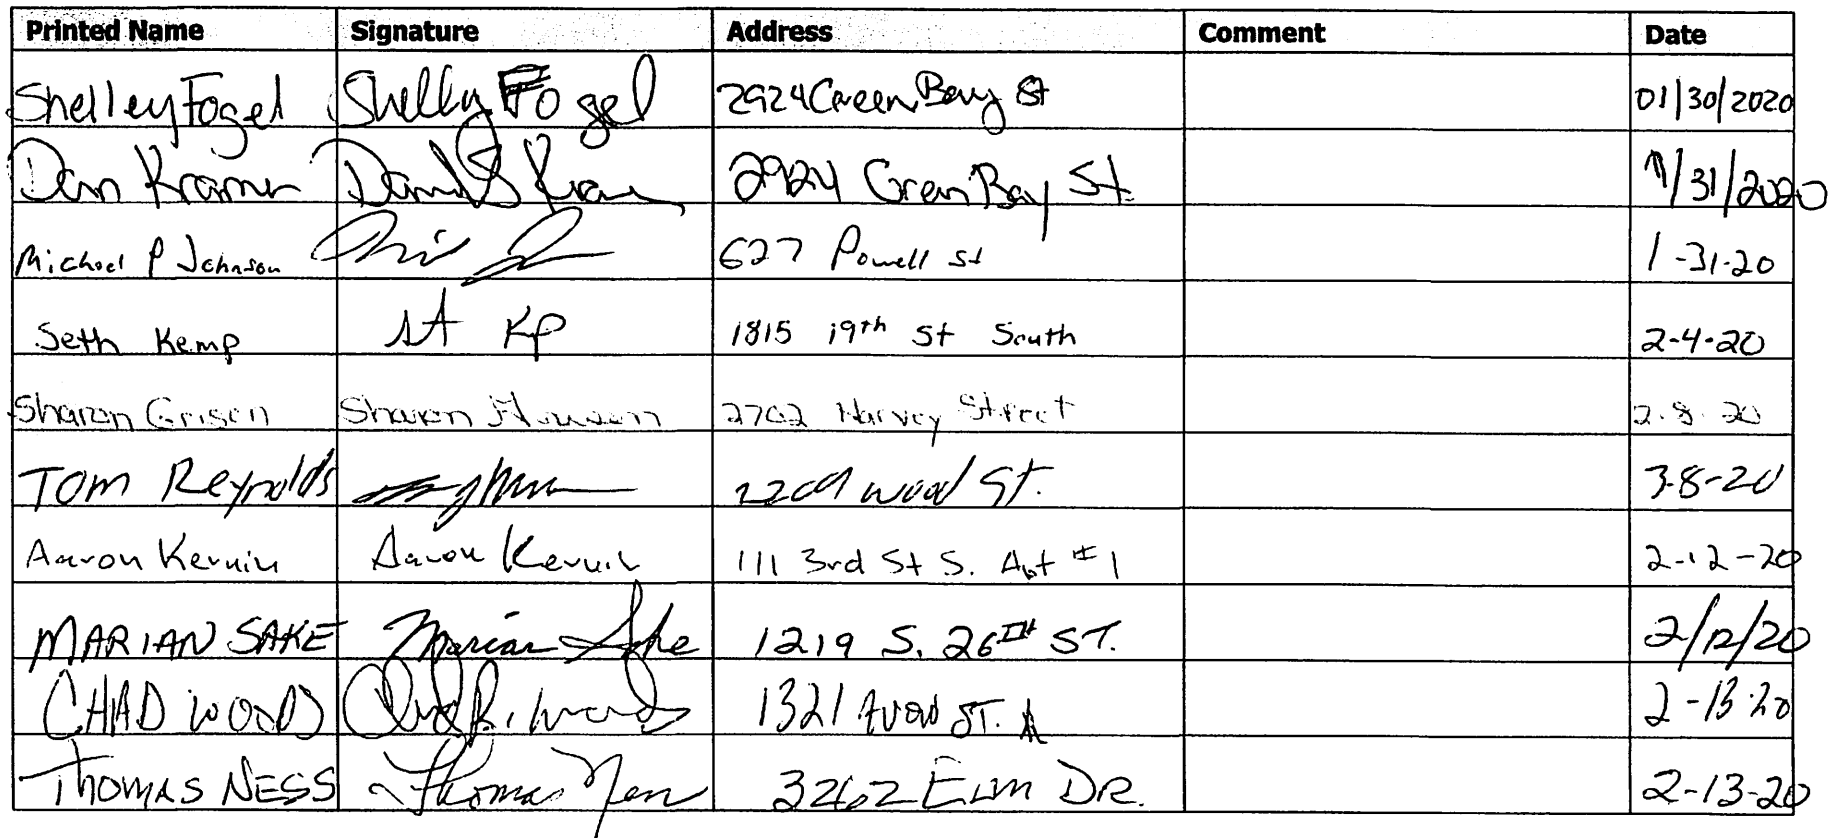 Printed Name Signature Address Comment Date
Shelley Fogel Shelly Fogel 2924 Green Bay St 01/30/2020
Dan Kramer 2924 Green Bay St. 1/31/2020
Michael P Johnson 627 Powell St 1-31-20
Seth Kemp St KP 1815 19th St South 2-4-20
Sharon Grisen Sharon 2702 Harvey Street 2-8-20
Tom Reynolds Wood St. 3-8-20
Aaron Kervin Aaron Kervin 111 3rd St S. Apt #1 2-12-20
MARIAN SAKE Marian Sake 1219 S. 26TH ST. 2/12/20
CHAD WOODS Chad R. Woods 1321 Avon ST. 2-13-20
THOMAS NESS Thomas Ness 3262 ELM DR. 2-13-20